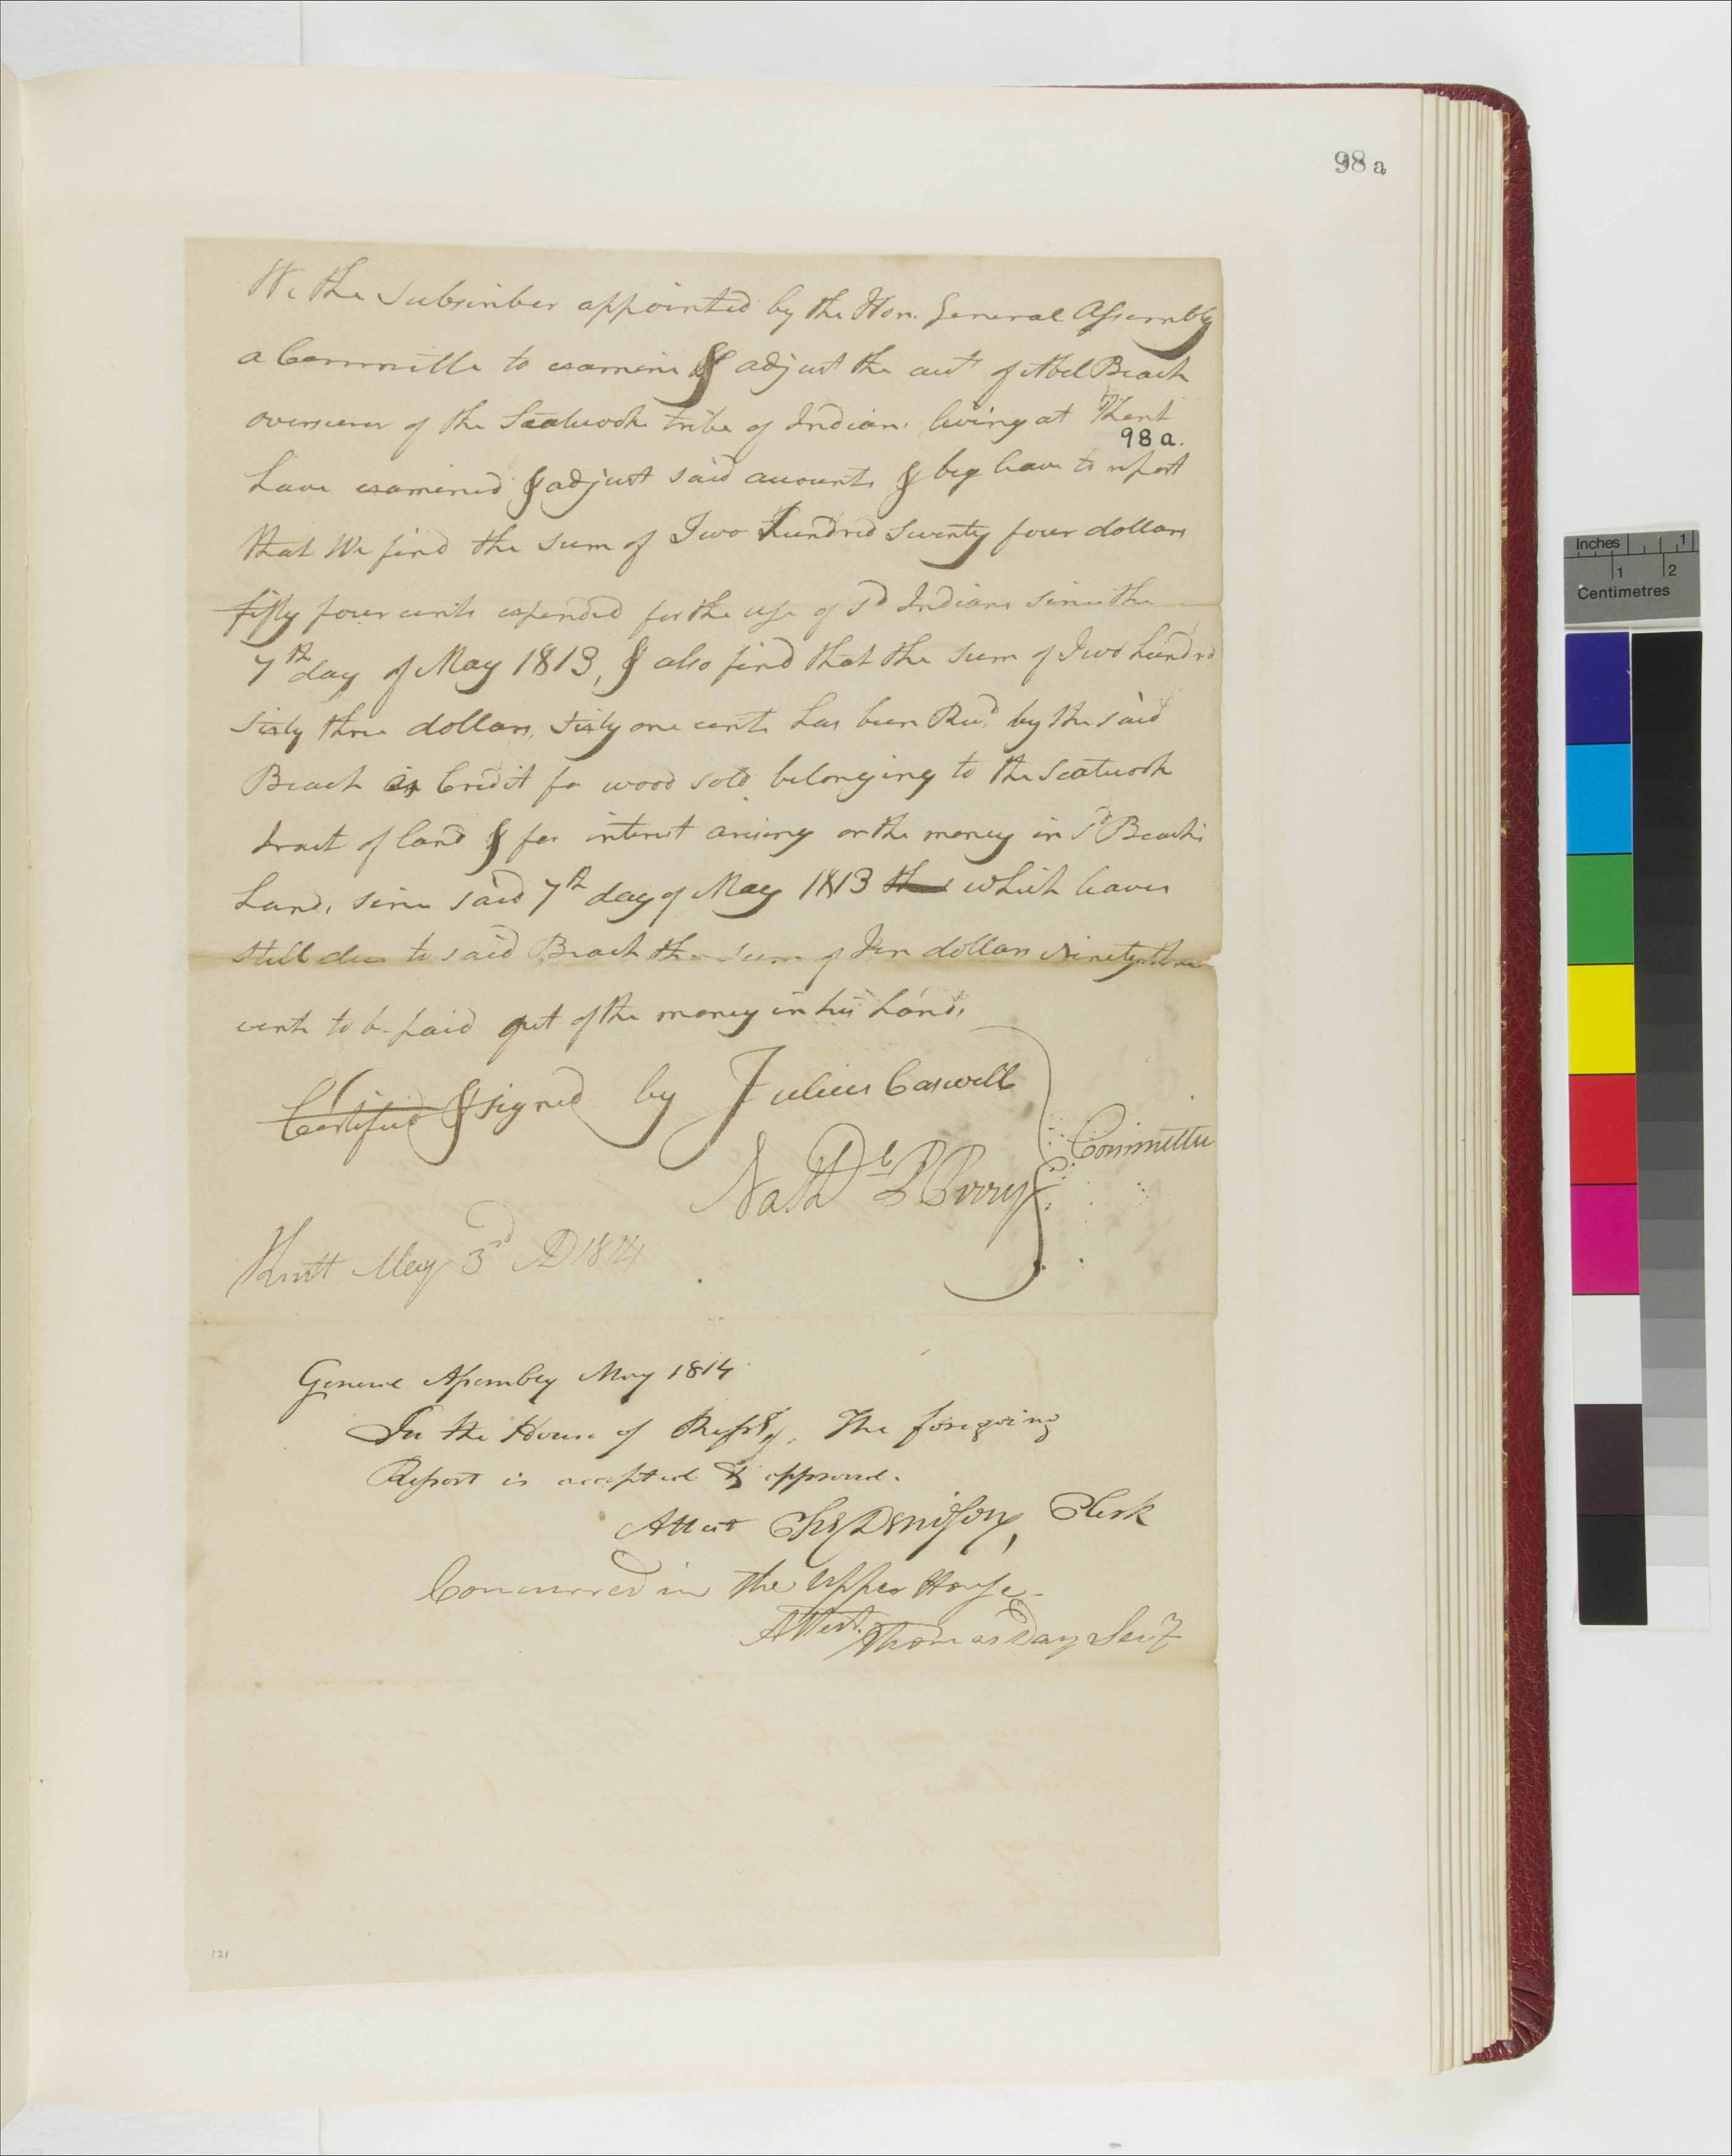 98 a
We the Subscriber appointed by the Hon. General Assembly
a Committe to examine & adjust the acct of Abel Beach
overseer of the Scatucook tribe of Indians living at Kent
98 a.
have examined & adjust said accounts & beg leave to report
that We find the sum of Two hundred seventy four dollars
fifty four cents expended for the use of sd Indians since the
7th day of May 1813, & also find that the sum of Two hundrd
sixty three dollars, sixty one cents has been Recd by the said
Beach as Credit for wood sold belonging to the Scatucook
tract of land & for interest arising on the money in sd Beachs
hands since said 7th day of May 1813 which leaves
still due to said Beach the sum of Ten dollars Ninety three
cents to be paid out of the money in his hands
Certified & signed by Julius Caswell
Nathl P Perry
Committee
Kent May 3rd AD 1814
General Assembly May 1814
In the House of Repsts. The foregoing
Report is accepted & approved.
Attest Chs Denison, Clerk
Concurred in the Upper House
Attest. Thomas Day Secy
121
Inches 1
1 2
Centimetres